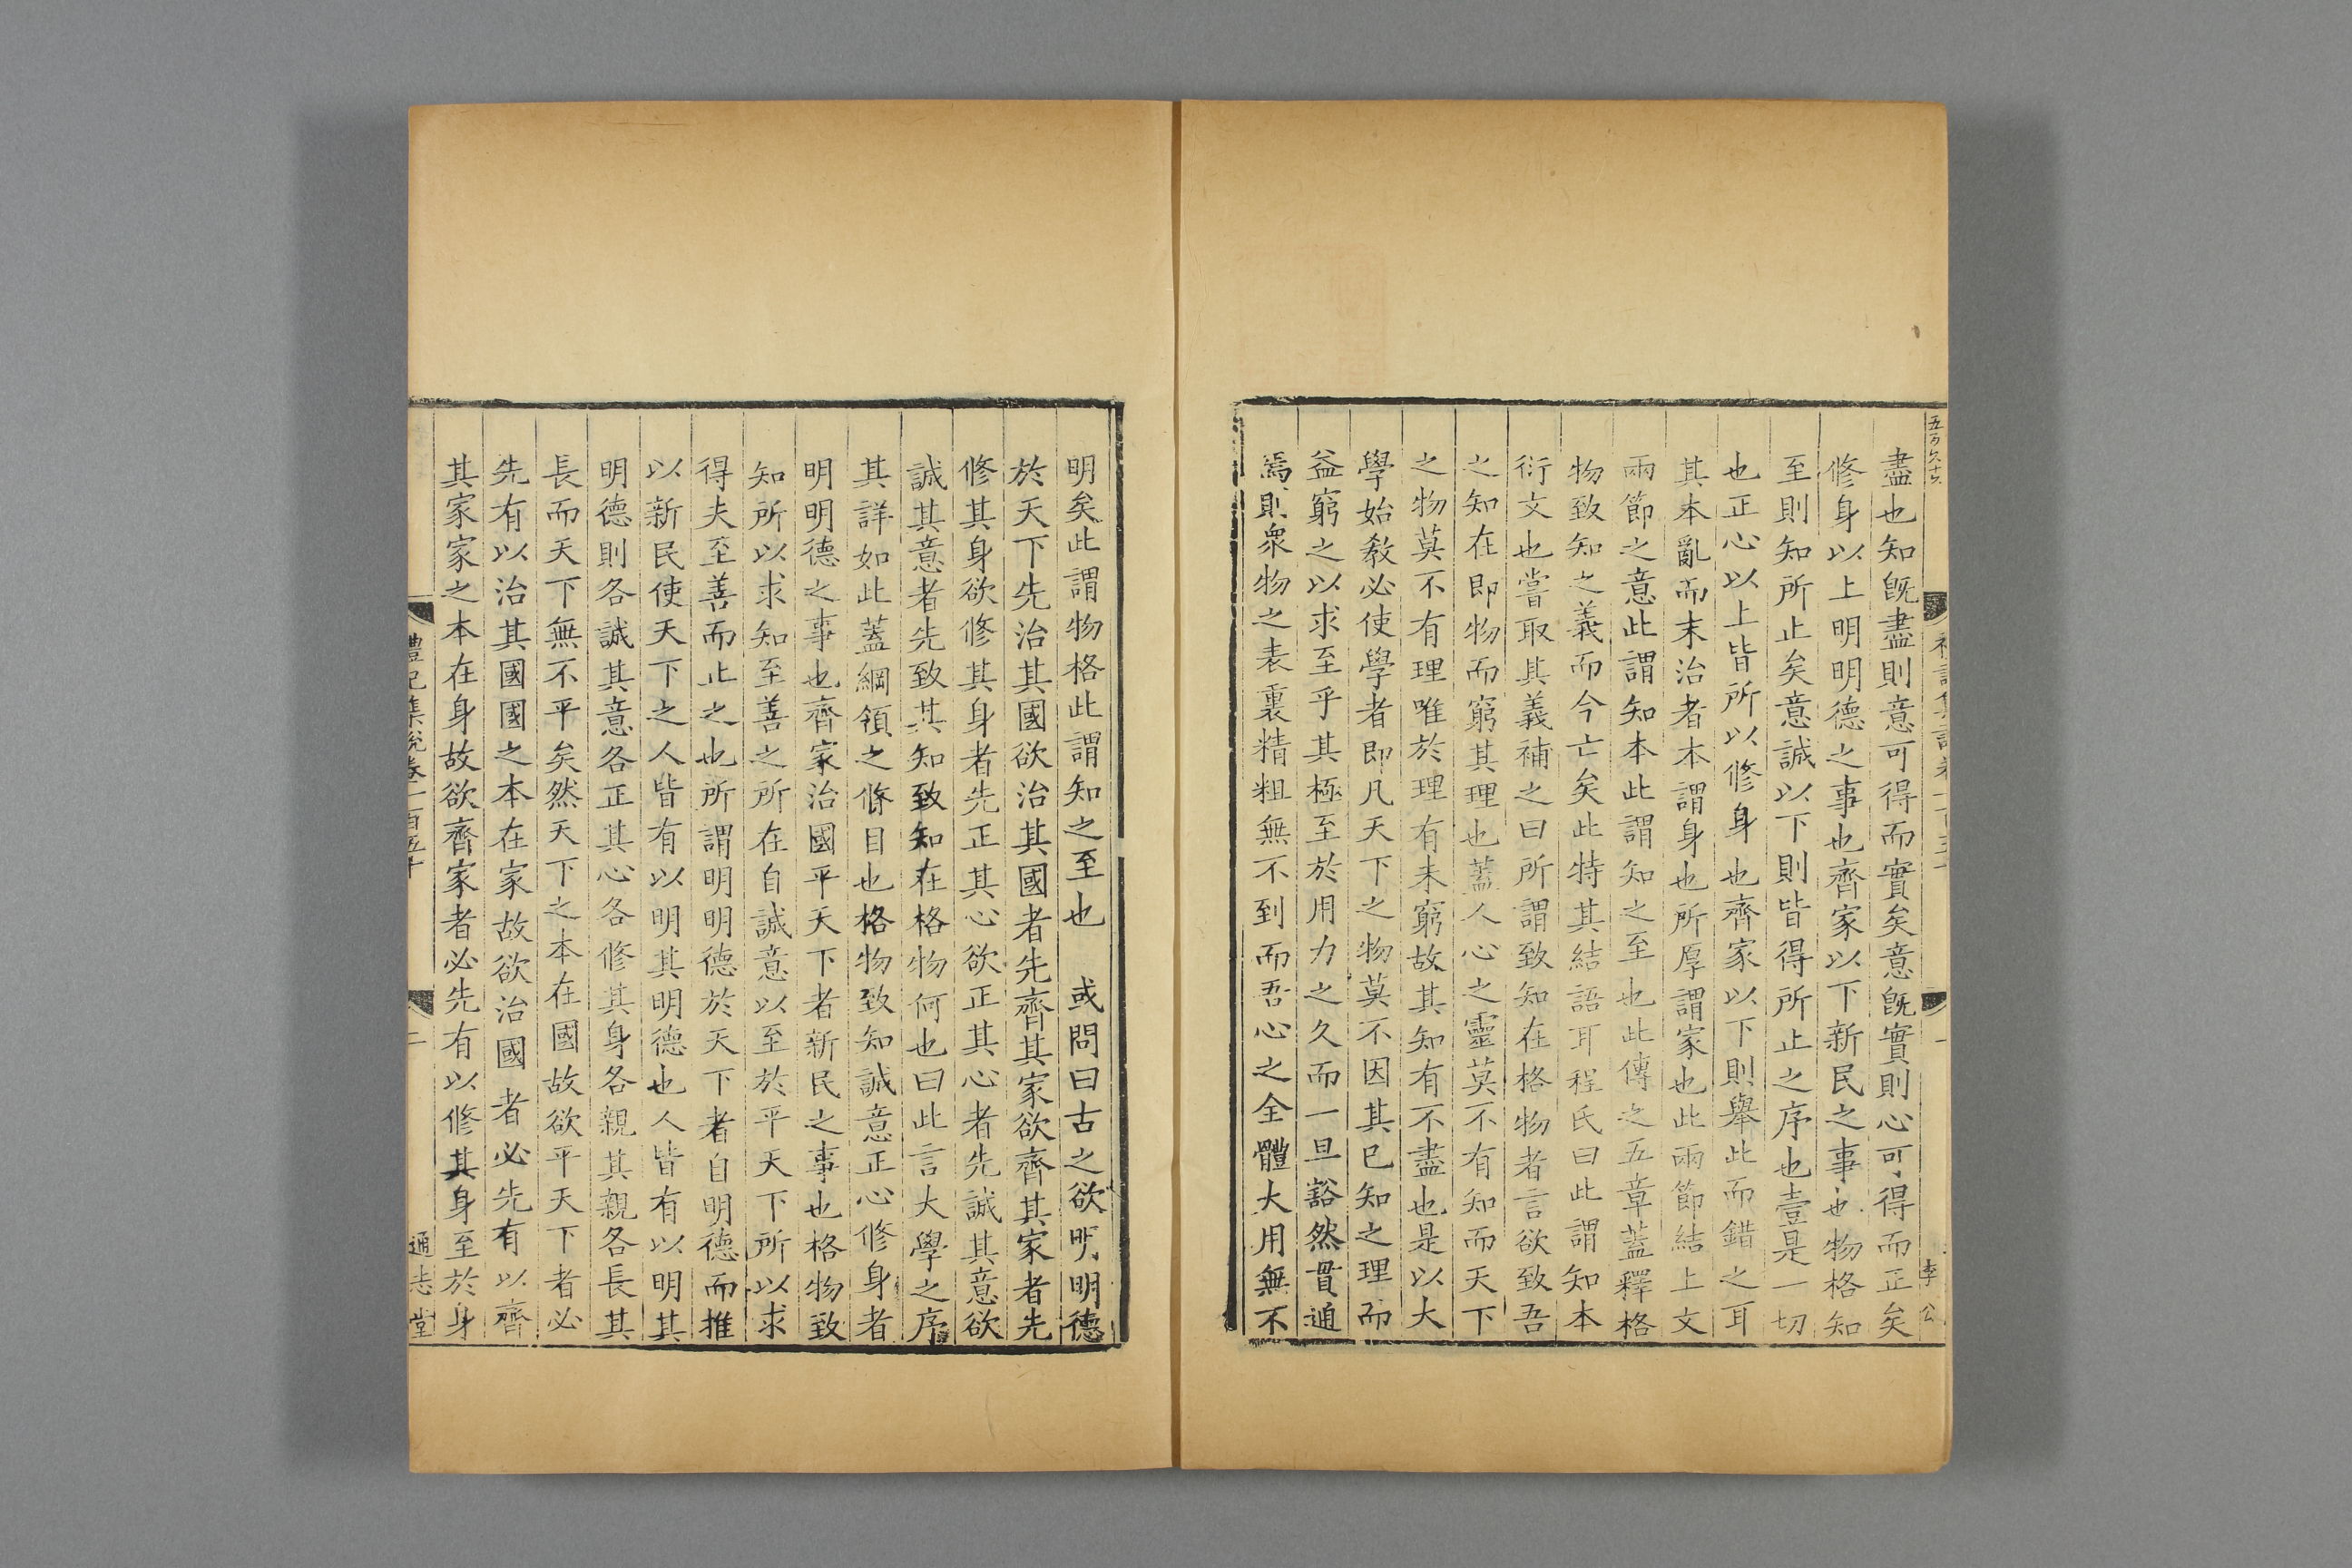 盡也知旣盡則意可得而實矣意旣實則心可得而正矣
修身以上明明德之事也齊家以下新民之事也物格知
至則知所止矣意誠以下則皆得所止之序也壹是一切
也正心以上皆所以修身也齊家以下則舉此而錯之耳
其本亂而末治者本謂身也所厚謂家也此兩節結上文
兩節之意此謂知本此謂知之至也此傳之五章蓋釋格
物致知之義而今亡矣此特其結語耳程氏曰此謂知本
衍文也嘗取其義補之曰所謂致知在格物者言欲致吾
之知在即物而窮其理也蓋人心之靈莫不有知而天下
之物莫不有理唯於理有未窮故其知有不盡也是以大
學始教必使學者即凡天下之物莫不因其已知之理而
益窮之以求至乎其極至於用力之久而一旦豁然貫通
焉則衆物之表裏精粗無不到而吾心之全體大用無不
明矣此謂物格此謂知之至也　或問曰古之欲明明德
於天下先治其國欲治其國者先齊其家欲齊其家者先
修其身欲修其身者先正其心欲正其心者先誠其意欲
誠其意者先致其知致知在格物何也曰此言大學之序
其詳如此蓋綱領之條目也格物致知誠意正心修身者
明明德之事也齊家治國平天下者新民之事也格物致
知所以求知至善之所在自誠意以至於平天下所以求
得夫至善而止之也所謂明明德於天下者自明德而推
以新民使天下之人皆有以明其明德也人皆有以明其
明德則各誠其意各正其心各修其身各親其親各長其
長而天下無不平矣然天下之本在國故欲平天下者必
先有以治其國國之本在家故欲治國者必先有以齊
其家家之本在身故欲齊家者必先有以修其身至於身
禮記集說卷一百五十
二
通志堂